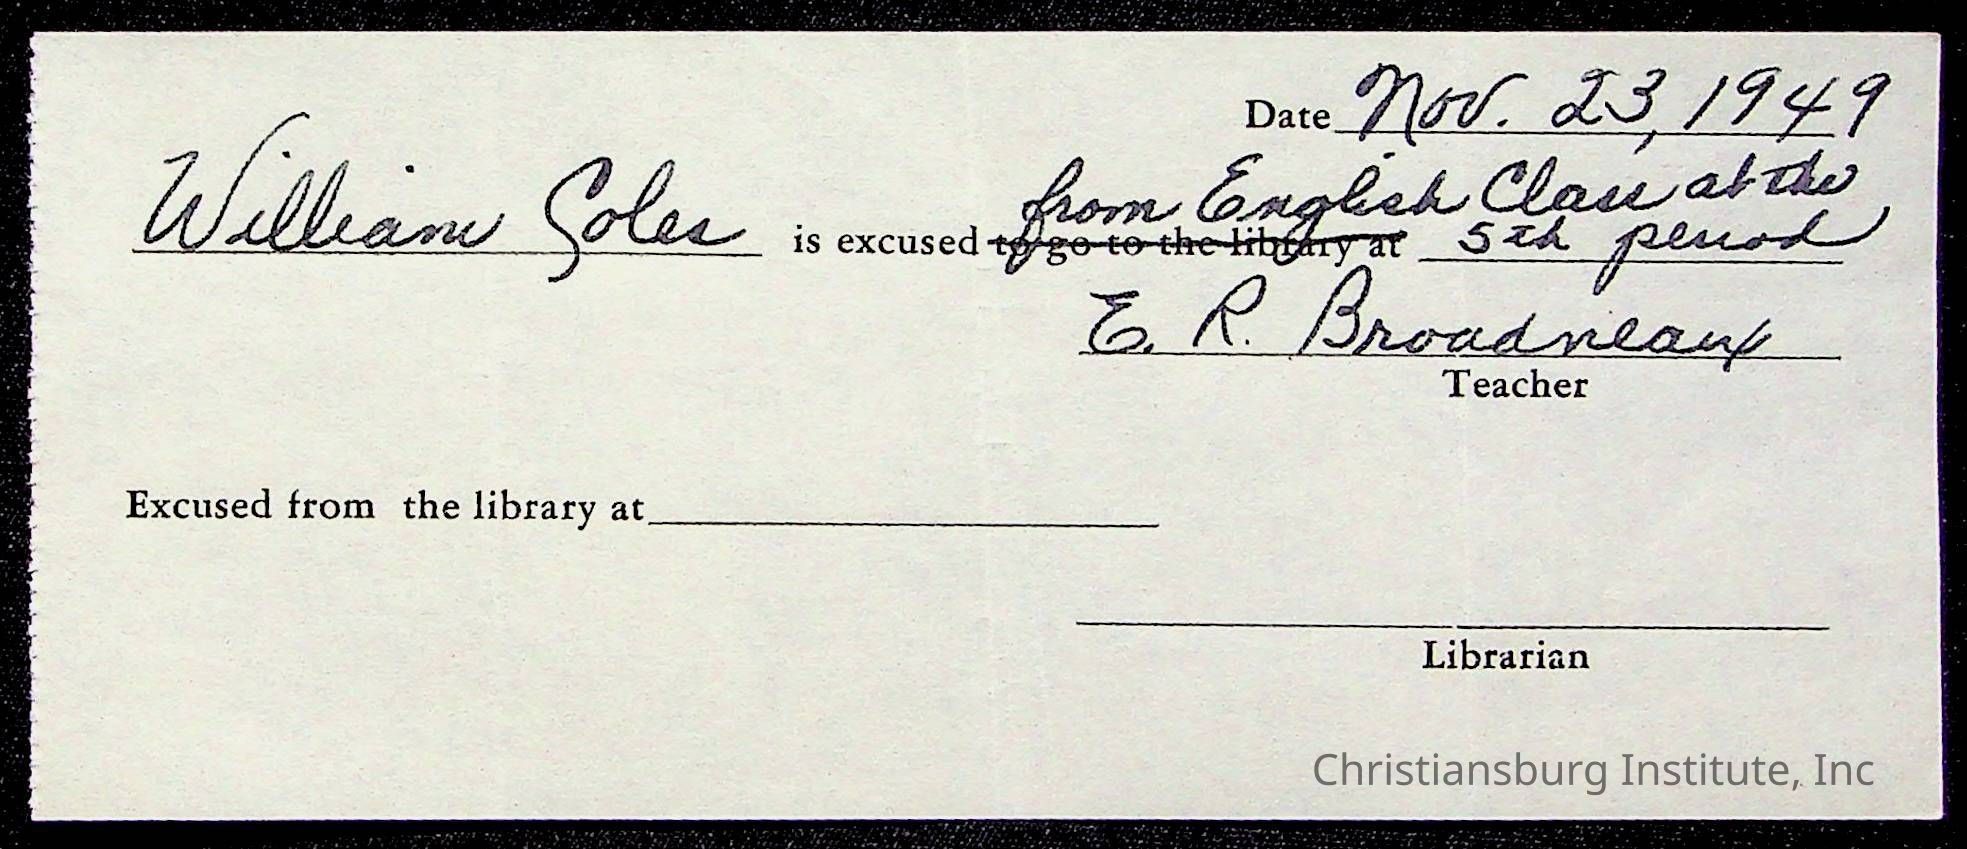 Date Nov. 23, 1949
from English Class at the
William Soles is excused to go to the library at 5th period
E. R. Broadneaux
Teacher
Excused from the library at
Librarian
Christiansburg Institute, Inc